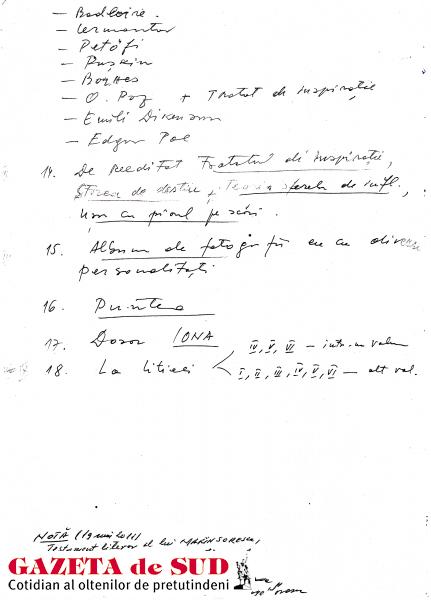 — Bodleire.
— Lermontov
— Petöfi
— Pușkin
— Borges
— O. Paz + Tratat de inspirație
— Emili Dikenson
— Edgar Poe
14. De reeditat Tratatul de inspirație,
Starea de destin, Teoria sferelor de infl.,
Un cu pianul pe scări.
15. Album de fotografii eu cu diverse
personalități
16. Puntea
17. Dosar IONA
18. La Lilieci
IV, V, VI — intr-un volum
I, II, III, IV, V, VI — alt vol.
NOTĂ (19 mai 2011)
Testament literar al lui MARIN SORESCU,
GAZETA de SUD
Cotidian al oltenilor de pretutindeni